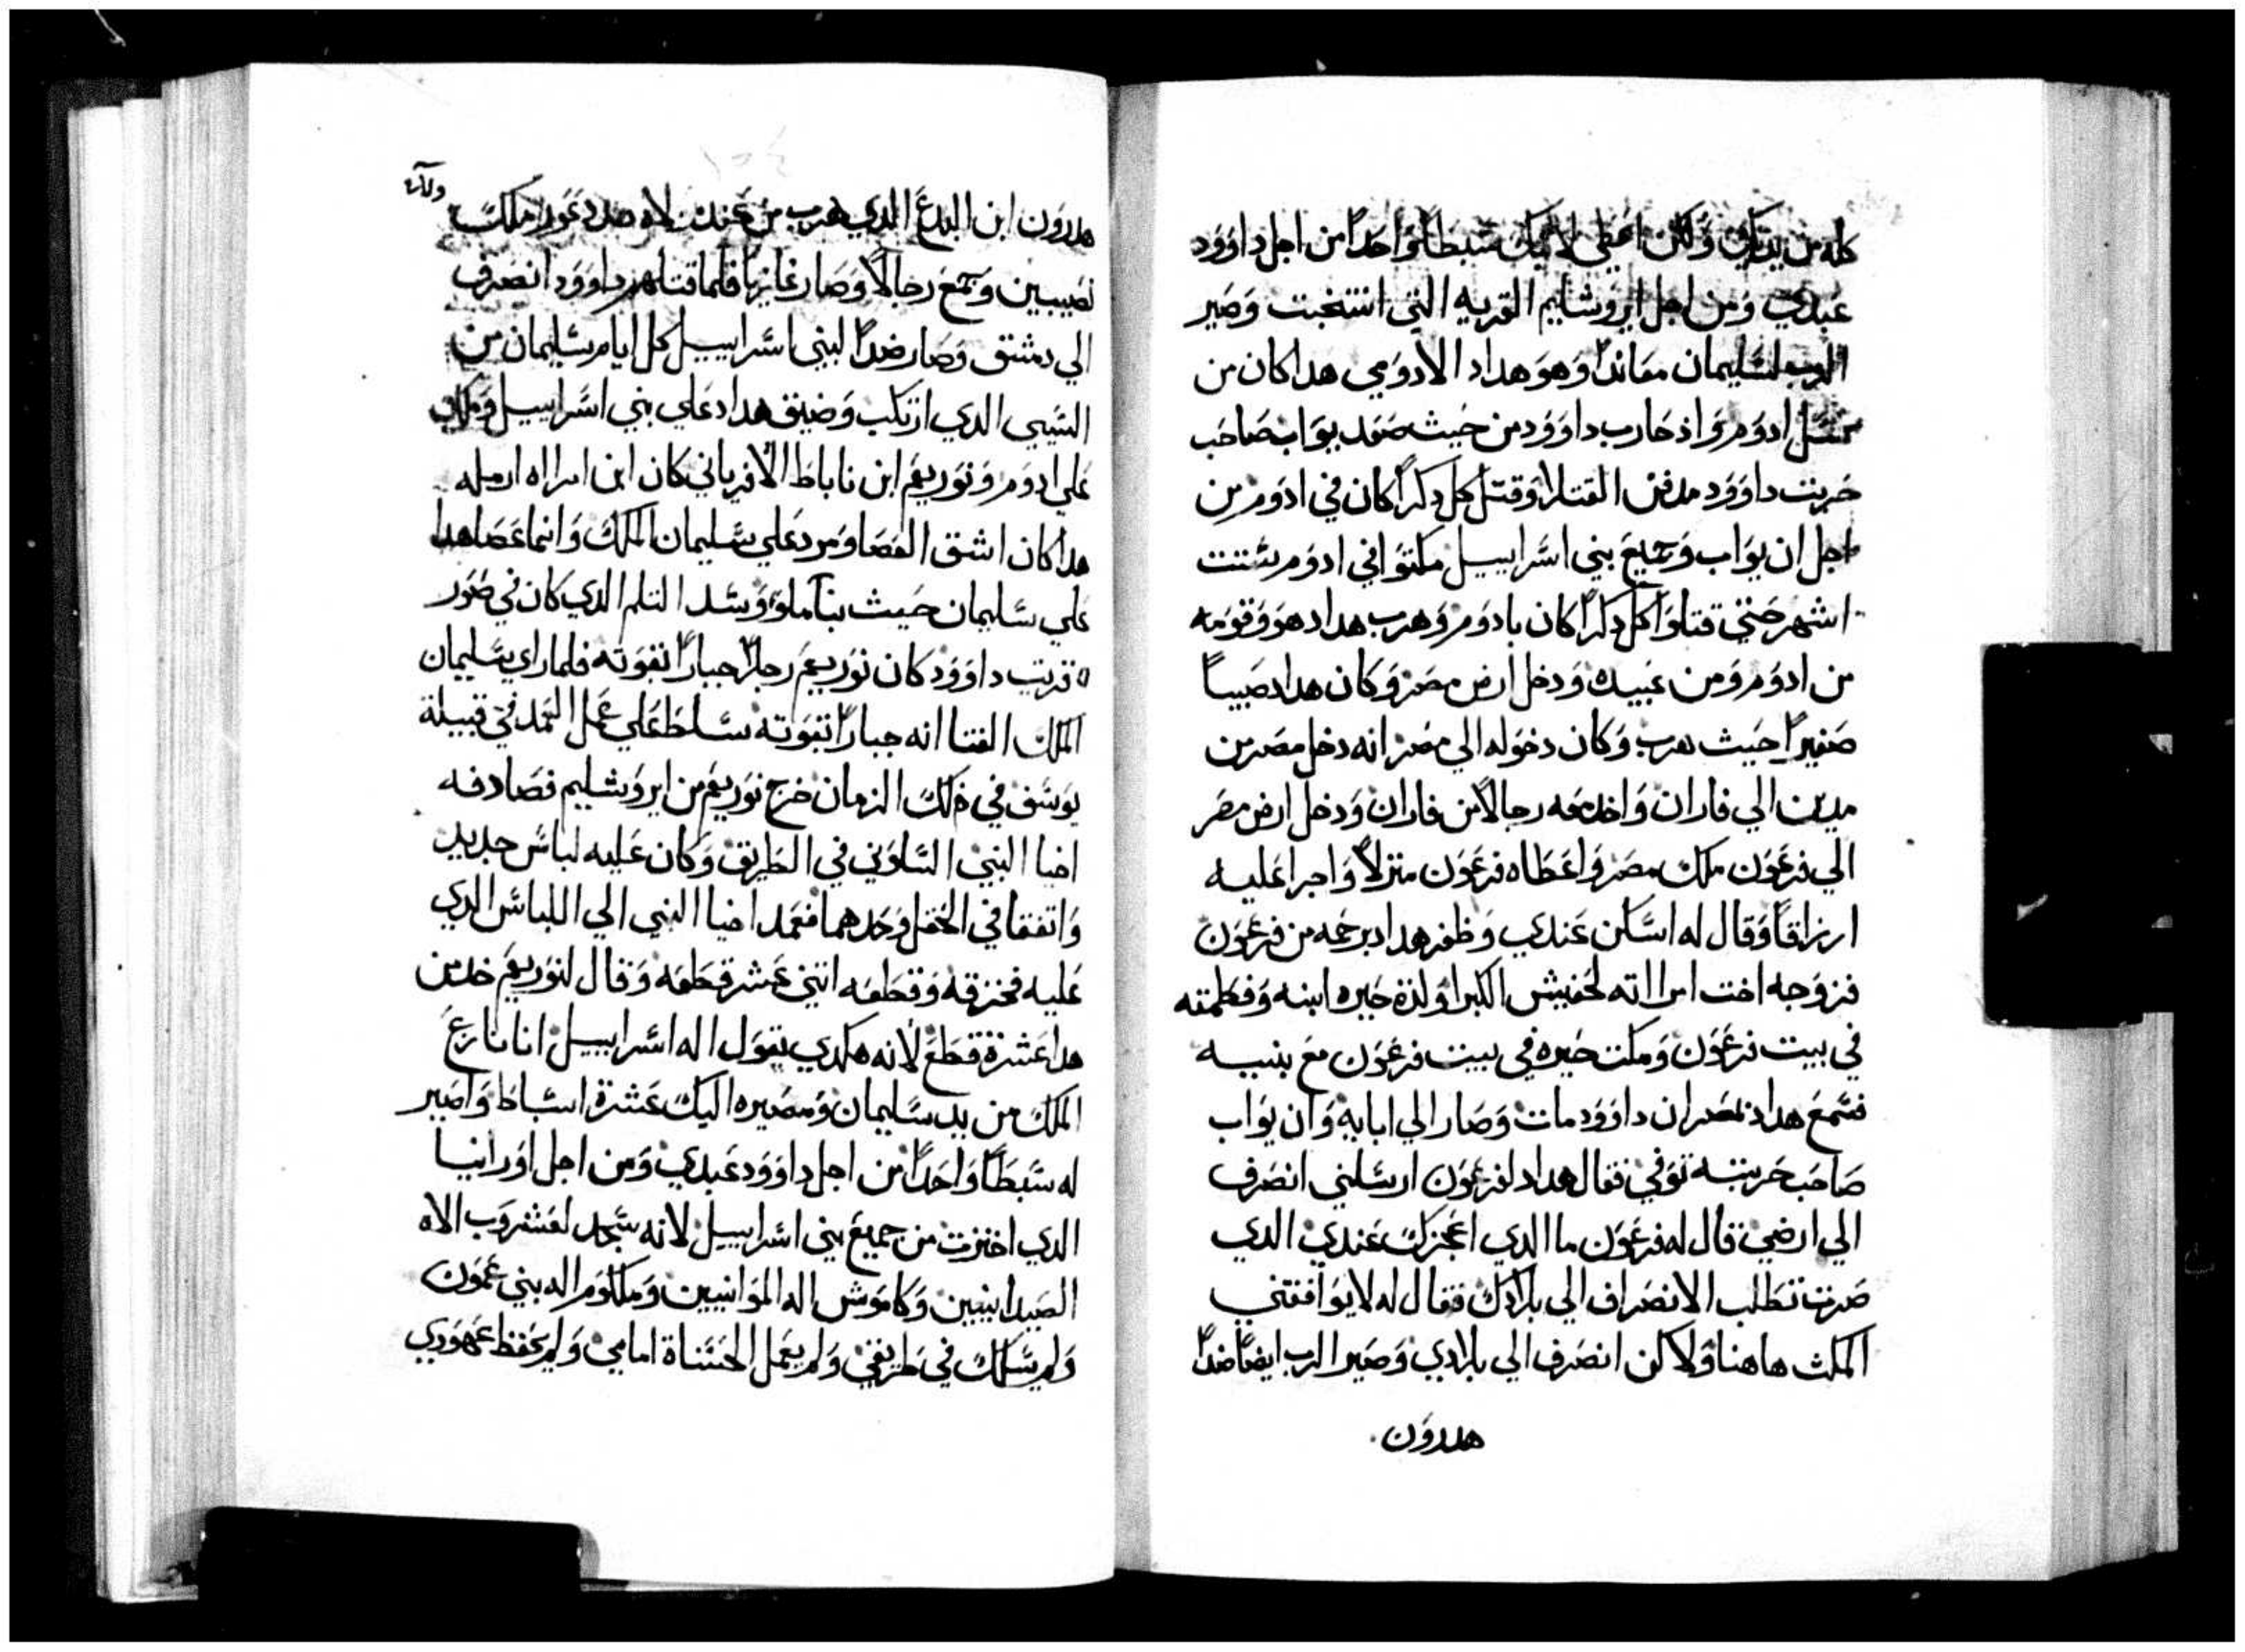 كله من يديك ولكن اعطي لابنك سبطاً واحداً من اجل داوود
عبدي ومن اجل ايروشليم القريه التي انتخبت وصير
الرب لسليمان معانداً وهو هداد الادومي هدا كان من
نسل ادوم واذ حارب داوود من حيث صعد يواب صاحب
حربت داوود مدفن القتلا وقتل كل دكراً كان في ادوم من
اجل ان يواب وجميع بني اسراييل مكتوا في ادوم ستت
اشهر حتي قتلوا كل دكراً كان بادوم وهرب هداد هو وقومه
من ادوم ومن عبيده ودخل ارض مصر وكان هداد صبياً
صغيراً حيث هرب وكان دخوله الي مصر انه دخل مصر من
مدين الي فاران واخد معه رجالاً من فاران ودخل ارض مصر
الي فرعون ملك مصر واعطاه فرعون منزلاً واجرا عليه
ارزاقاً وقال له اسكن عندي وظفر هداد برحمه من فرعون
فزوجه اخت امرااته لحفيش الكبرا ولدة حيره ابنه وفطمته
في بيت فرعون ومكت حيره في بيت فرعون مع بنيه
فسمع هداد بمصر ان داوود مات وصار الي ابايه وان يواب
صاحب حربته توفي فقال هداد لفرعون ارسلني انصرف
الي ارضي قال له فرعون ما الدي اعجزك عندي الدي
صرت تطلب الانصراف الي بلادك فقال له لا يوافقني
المكث هاهنا ولاكن انصرف الي بلادي وصير الرب ايضاً ضداً
هدرون
هدرون ابن اليدع الدي هرب من عند هدد عزر ملك
نصيبين وجمع رجالاً وصار غازياً فلما قتلهم داوود انصرف
الي دمشق وصار ضداً لبني اسراييل كل ايام سليمان من
الشي الدي ارتكب وضيق هداد علي بني اسراييل وملك
علي ادوم ونوربعم ابن ناباط الافرياني كان ابن امراه ارمله
هدا كان اشق العصا ومرد علي سليمان الملك وانما عصا هدا
علي سليمان حيث بنا ملو وسد التلم الدي كان في صور
قريت داوود كان نوربعم رجلاً جباراً بقوته فلما راي سليمان
الملك الفتا انه جباراً بقوته سلط علي عمل العمد في قبيلة
يوسف في ذلك الزمان خرج نوربعم من ايروشليم فصادفه
اخيا النبي الساوني في الطريق وكان عليه لباس جديد
واتفقا في الحقل وحدهما فعمد اخيا النبي الي اللباس الدي
عليه فخزقه وقطعه اتني عشر قطعه وقال لنوربعم خد من
هدا عشرة قطع لانه هكدي يقول اله اسراييل انا نازع
الملك من يد سليمان ومصيره اليك عشرة اسباط واصير
له سبطاً واحداً من اجل داوود عبدي ومن اجل اورانيا
الدي اخترت من جميع بني اسراييل لانه سجد لعشروب الاه
الصيدانيين وكاموش اله الموانيين وملكوم اله بني عمون
ولم يسلك في طريقي ولم يعمل الحسناة امامي ولم يحفظ عهودي